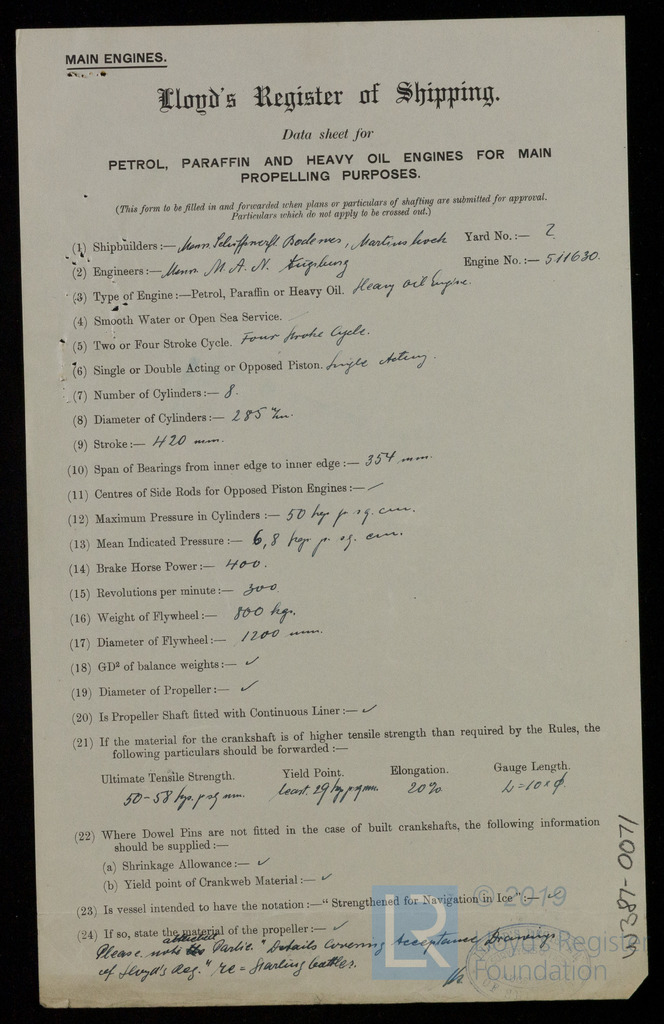 MAIN ENGINES.
Lloyd's Register of Shipping.
Data sheet for
PETROL, PARAFFIN AND HEAVY OIL ENGINES FOR MAIN
PROPELLING PURPOSES.
(This form to be filled in and forwarded when plans or particulars of shafting are submitted for approval.
Particulars which do not apply to be crossed out.)
(1) Shipbuilders:— Messrs Schiffswerft Bodewes, Martenshoek Yard No.:— ?
(2) Engineers:— Messrs M.A.N. Augsburg Engine No.:— 511630.
(3) Type of Engine:—Petrol, Paraffin or Heavy Oil. Heavy oil Engine.
(4) Smooth Water or Open Sea Service.
(5) Two or Four Stroke Cycle. Four Stroke Cycle.
(6) Single or Double Acting or Opposed Piston. Single Acting.
(7) Number of Cylinders:— 8.
(8) Diameter of Cylinders:— 285 m/m.
(9) Stroke:— 420 mm.
(10) Span of Bearings from inner edge to inner edge:— 354 mm.
(11) Centres of Side Rods for Opposed Piston Engines:— —
(12) Maximum Pressure in Cylinders:— 50 kgs p. sq. cm.
(13) Mean Indicated Pressure:— 6,8 kgs p. sq. cm.
(14) Brake Horse Power:— 400.
(15) Revolutions per minute:— 300
(16) Weight of Flywheel:— 800 kgs.
(17) Diameter of Flywheel:— 1200 mm.
(18) GD² of balance weights:— ✓
(19) Diameter of Propeller:— ✓
(20) Is Propeller Shaft fitted with Continuous Liner:— ✓
(21) If the material for the crankshaft is of higher tensile strength than required by the Rules, the
following particulars should be forwarded:—
Ultimate Tensile Strength. Yield Point. Elongation. Gauge Length.
50-58 kgs. p sq mm. least. 29 kg p sq mm. 20% L=10×φ.
(22) Where Dowel Pins are not fitted in the case of built crankshafts, the following information
should be supplied:—
(a) Shrinkage Allowance:— ✓
(b) Yield point of Crankweb Material:— ✓
(23) Is vessel intended to have the notation:—"Strengthened for Navigation in Ice":— ✓
(24) If so, state the material of the propeller:— ✓
Please note attached "Details Covering Acceptance Drawings
of Lloyd's Reg." re = Starting bottles.
W387-0071
LR
© 2019
Lloyd's Register
Foundation